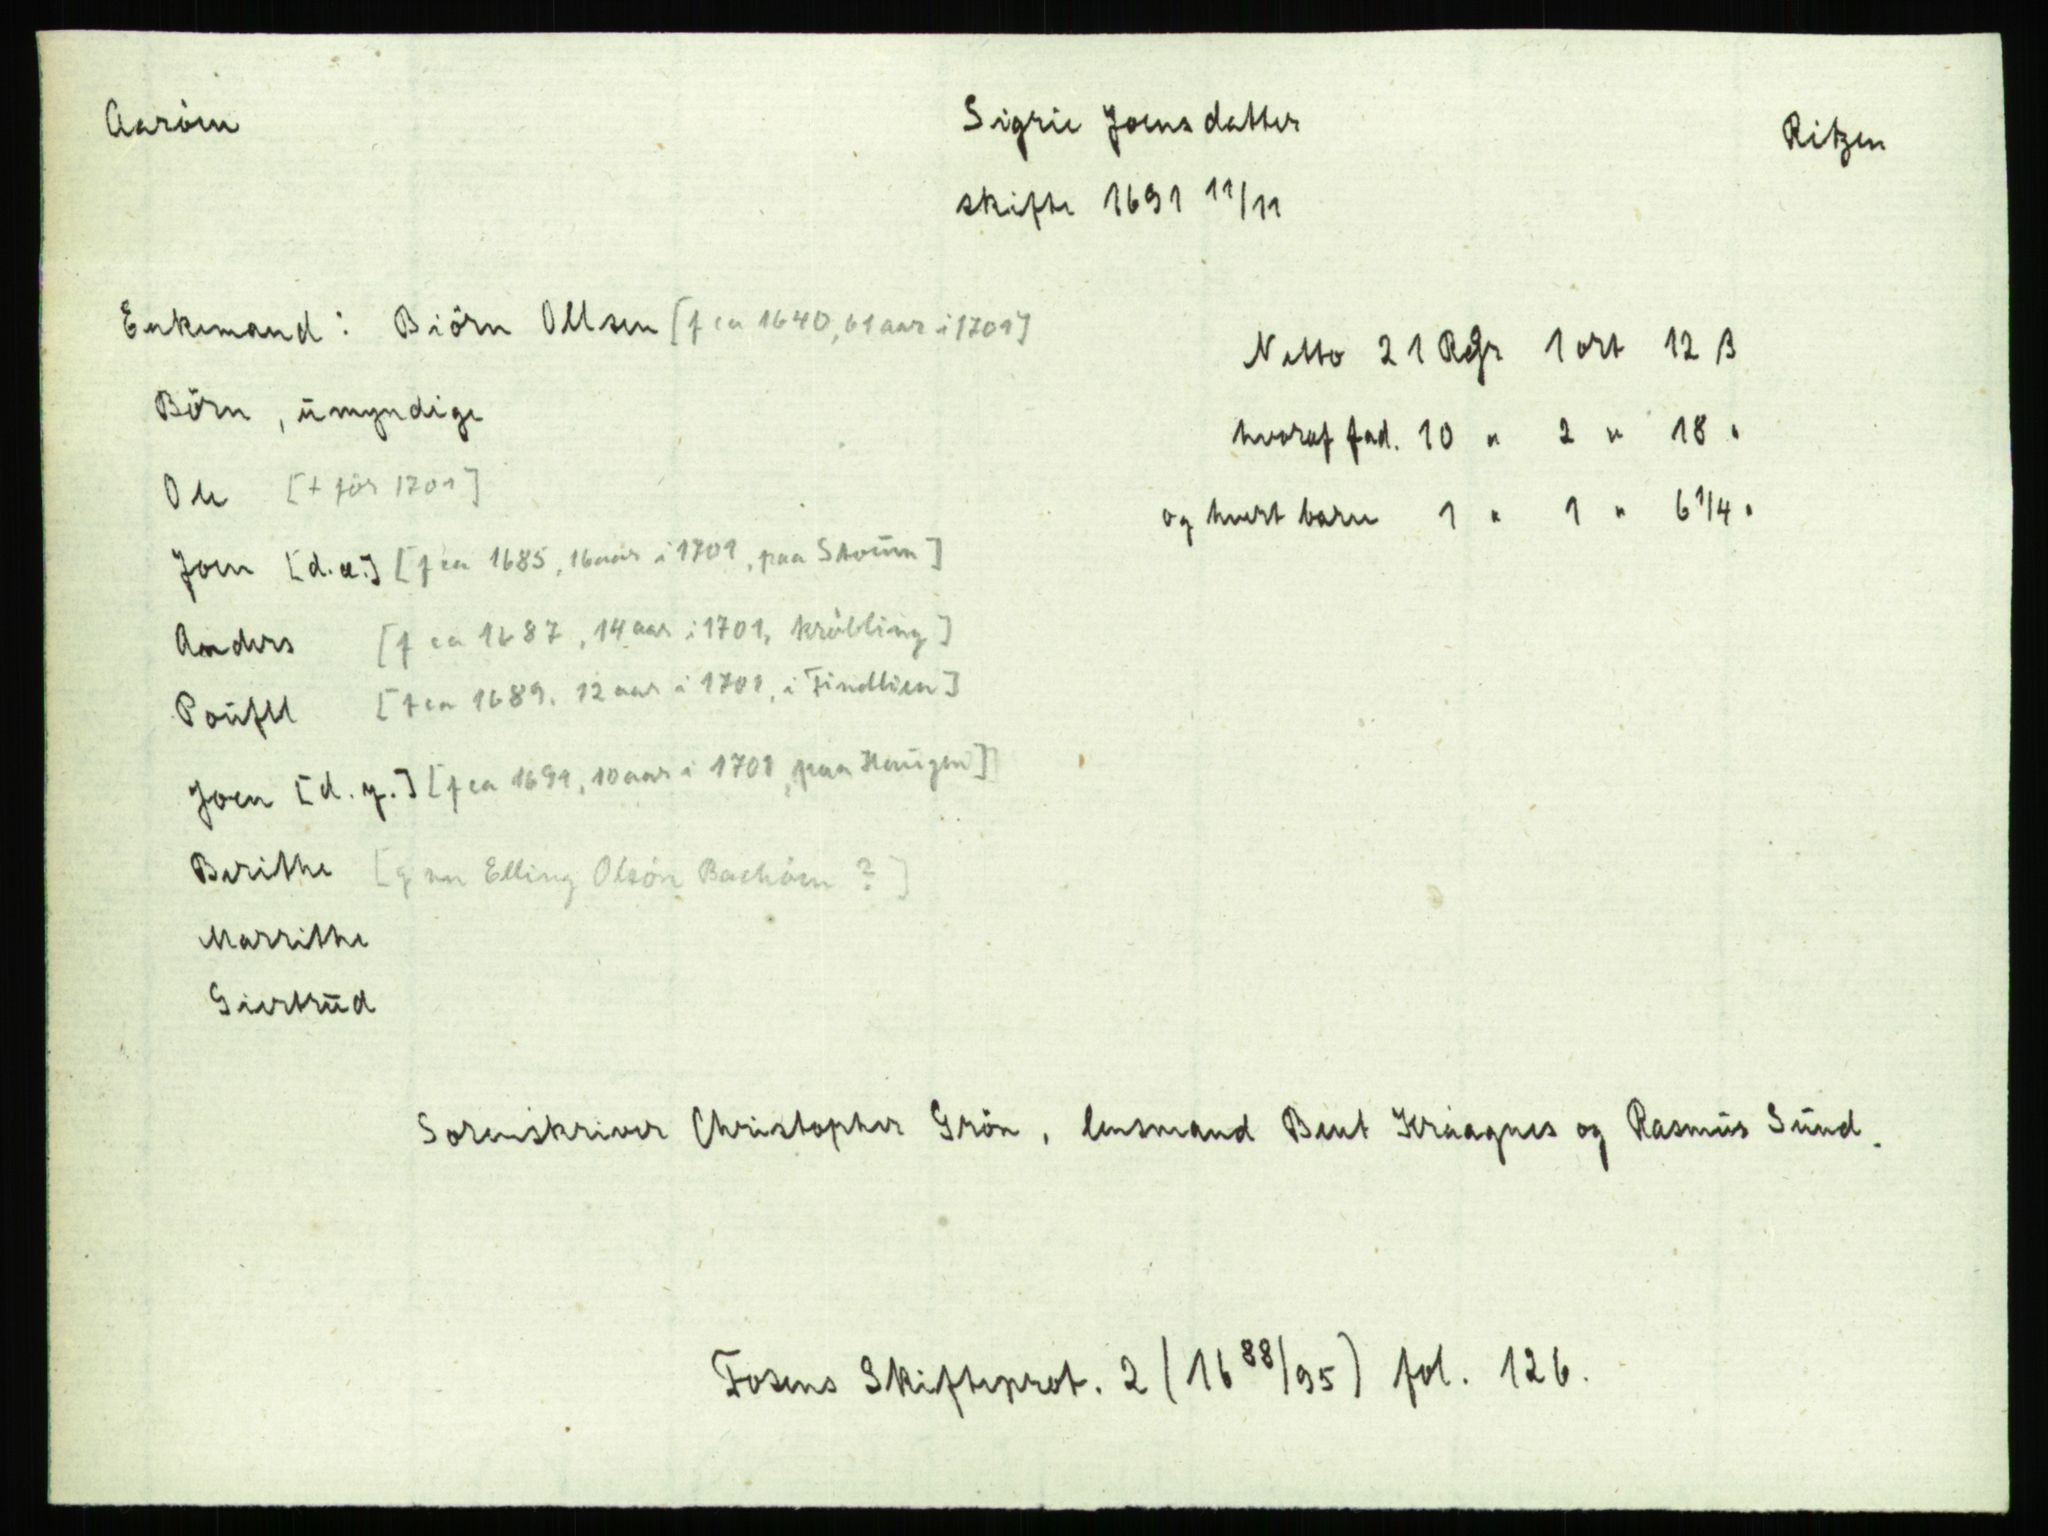 Aarøen
Sigrie Joensdatter
Ritzen
skifte 1691 11/11
Enkemand: Biörn Ollsen [f ca 1640, 61 aar i 1701]
Netto 21 Rdr 1 ort 12 β
Börn, ümyndige
hvoraf fad. 10 " 2 " 18 "
Ole [† för 1701]
og hvert barn 1 " 1 " 6 1/4 "
Joen [d.e.] [f ca 1685, 16 aar i 1701, paa Stoüen]
Anders [f ca 1687, 14 aar i 1701, kröbling]
Poüfell [f ca 1689. 12 aar i 1701, i Findlien]
Joen [d.y.] [f ca 1691, 10 aar i 1701, paa Haügen]
Berithe [g m Elling Olsön Bachöen ?]
Marrithe
Giertrüd
Sorenskriver Christopher Grön, lensmand Bent Kraagnes og Rasmüs Sünd.
Fosens Skifteprot. 2 (1688/95) fol. 126.